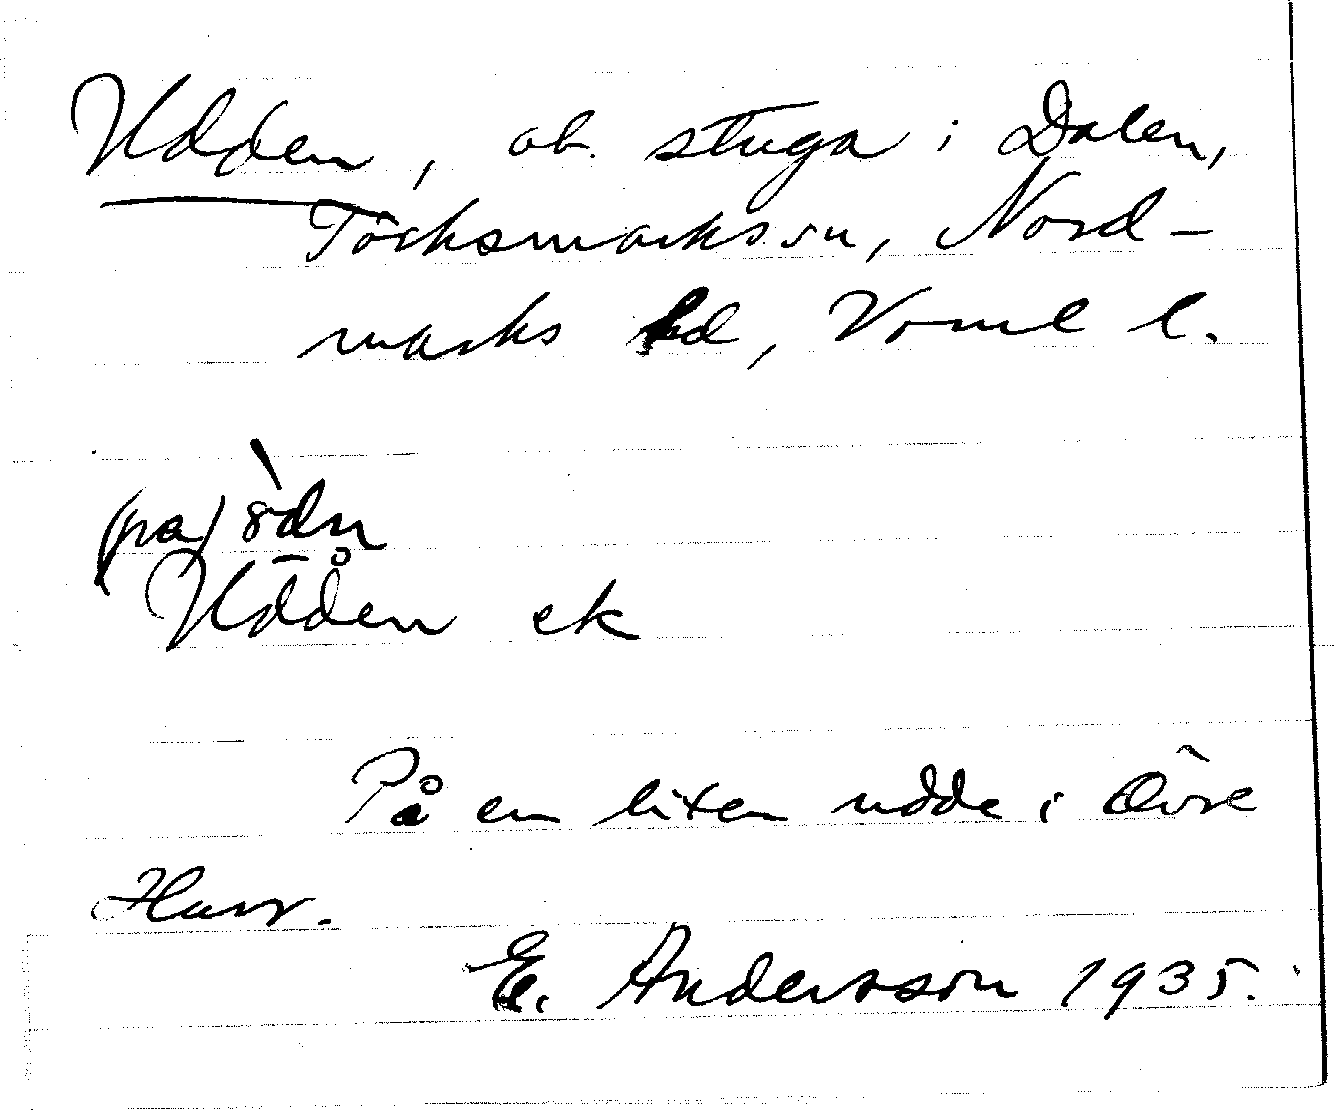 Udden, ob. stuga i Dalen,
Töcksmarks sn, Nord-
marks hd, Värml l.
(pa) 8dn
Udden ek
På en liten udde i Övre
Hurr.
E. Andersson 1935.